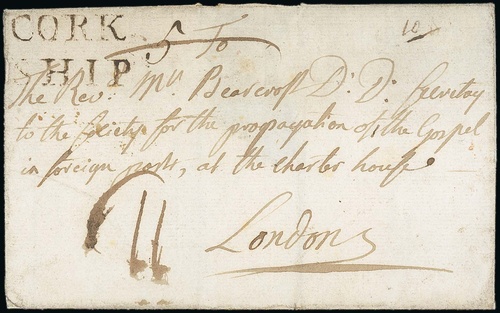 CORK
SHIP
5 To 10
The Rev.d Mr. Bearcroft D: D: Secretary
to the Society for the propagation of the Gospel
in foreign parts, at the charter house
London